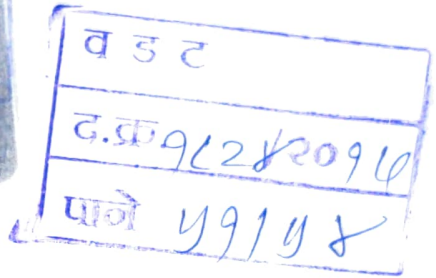 व ड ट
द.क्र १८२४/२०१७
पाने ५१/५४